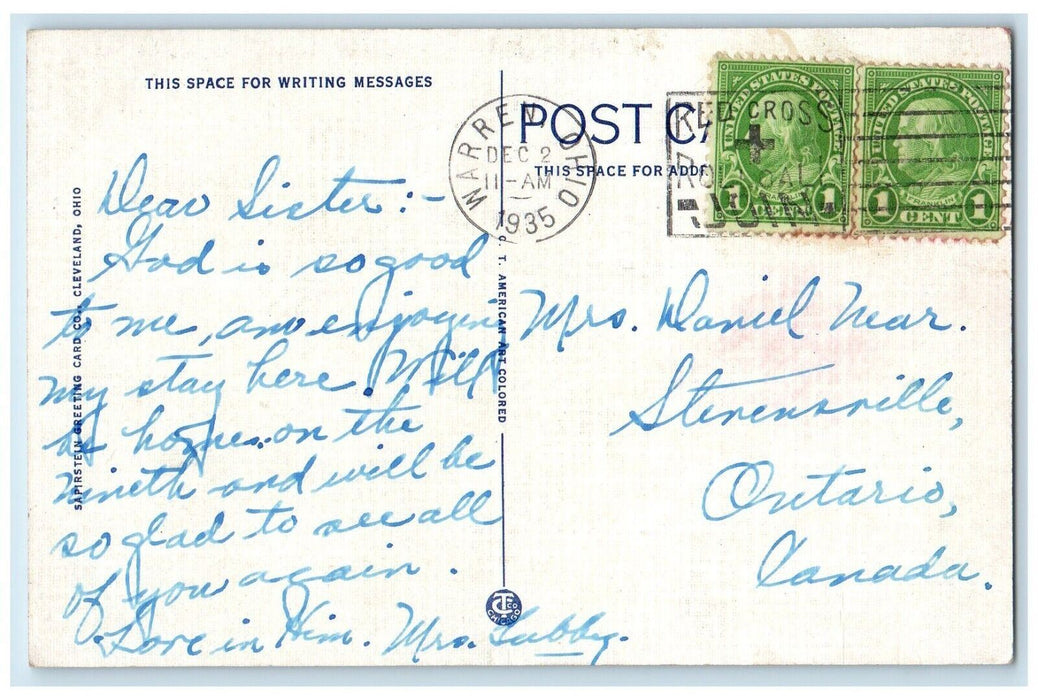 THIS SPACE FOR WRITING MESSAGES
POST CA
THIS SPACE FOR ADD
WARREN OHIO
DEC 2
11-AM
1935
RED CROSS
UNITED STATES POSTAGE
1 CENT 1
UNITED STATES POSTAGE
FRANKLIN
1 CENT 1
Dear Sister:-
God is so good
to me, am enjoying
my stay here. Will
be home on the
nineth and will be
so glad to see all
of you again.
Love in Him. Mrs.
Mrs. Daniel Near.
Stevensville,
Ontario,
Canada.
SAPIRSTEIN GREETING CARD CO., CLEVELAND, OHIO
C. T. AMERICAN ART COLORED
CHICAGO